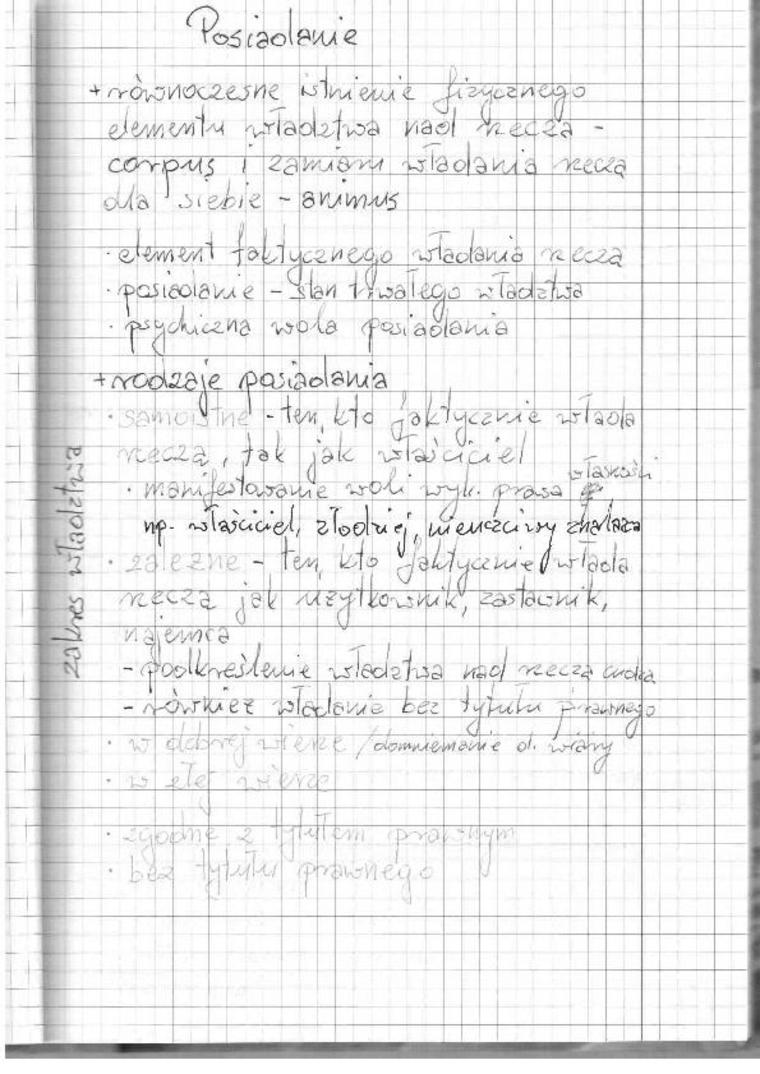 Posiadanie
+ równoczesne istnienie fizycznego
elementu władztwa nad rzeczą -
corpus i zamiaru władania rzeczą
dla siebie - animus
· element faktycznego władania rzeczą
· posiadanie - stan trwałego władztwa
· psychiczna wola posiadania
+ rodzaje posiadania
· samoistne - ten, kto faktycznie włada
rzeczą, tak jak właściciel
· manifestowanie woli wyk. prawa własności
np. właściciel, złodziej, nieuczciwy znalazca
· zależne - ten, kto faktycznie włada
rzeczą jak użytkownik, zastawnik,
najemca
- podkreślenie władztwa nad rzeczą cudzą
- również władanie bez tytułu prawnego
· w dobrej wierze / domniemanie d. wiary
· w złej wierze
· zgodne z tytułem prawnym
· bez tytułu prawnego
zakres władztwa